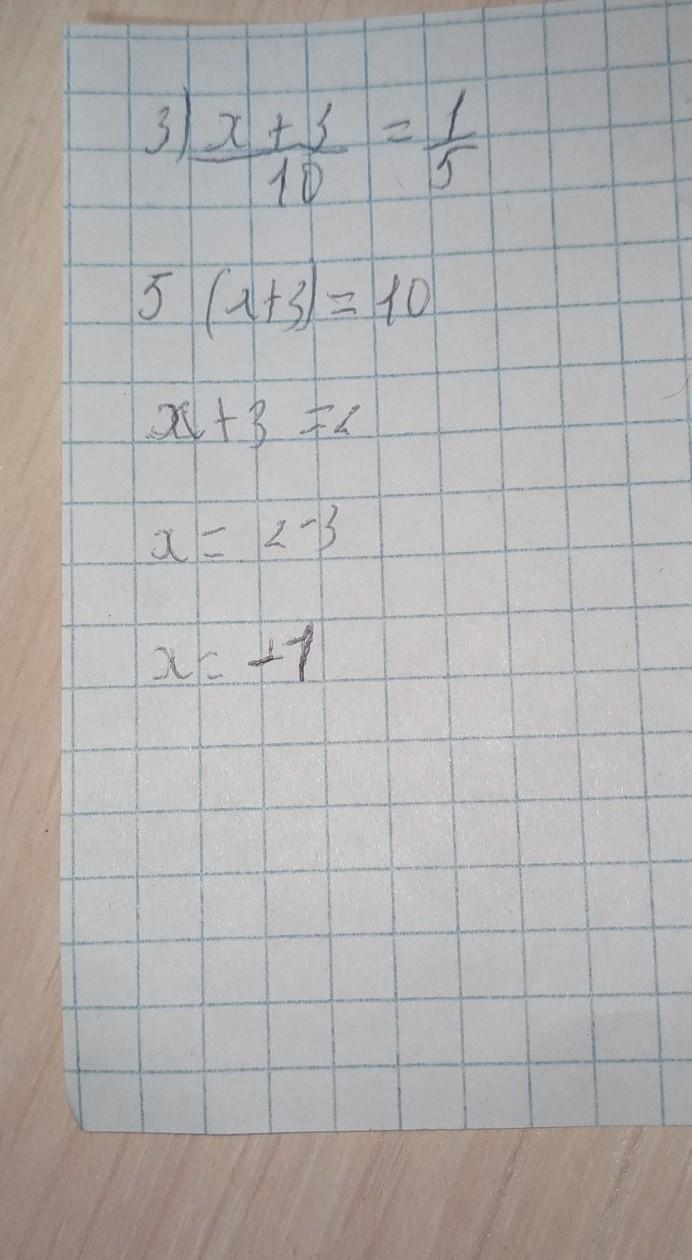 3) x + 3 / 10 = 1 / 5
5 (x+3) = 10
x + 3 = 2
x = 2 - 3
x = -1